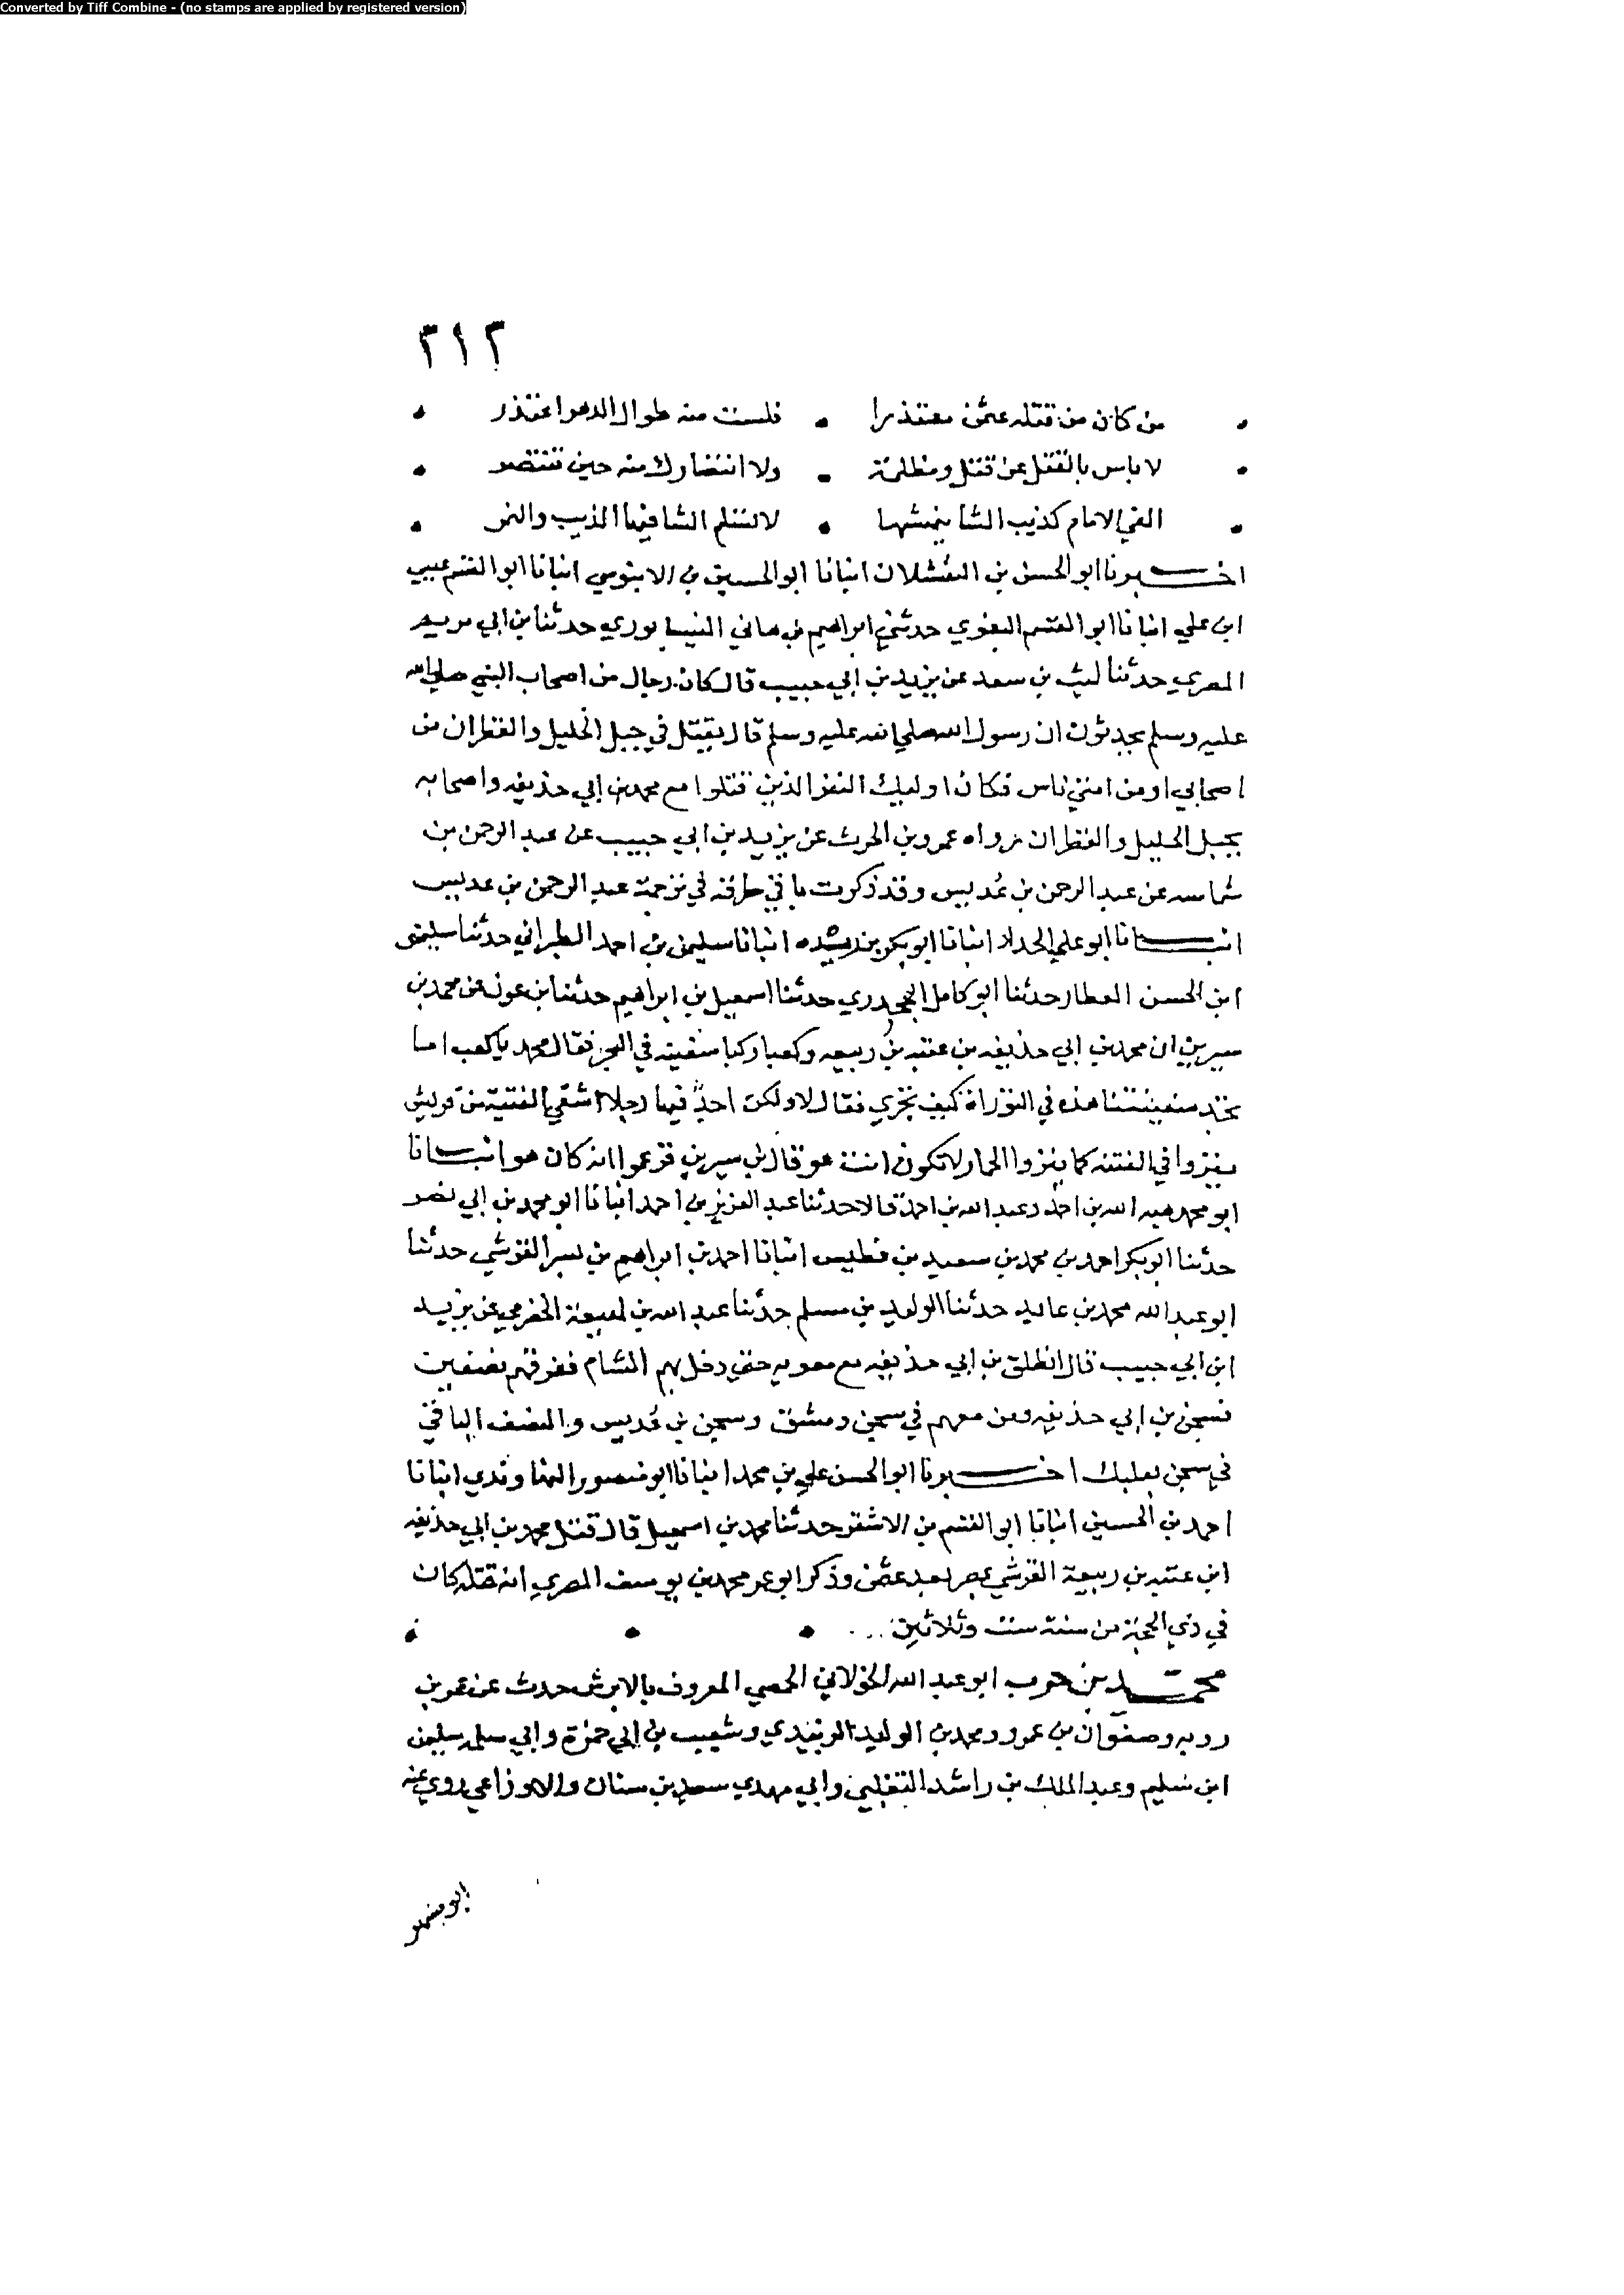 Converted by Tiff Combine - (no stamps are applied by registered version)
٣١٢
من كان من قتله عثمن معتذرا • فلست منه طوال الدهر اعتذر •
لا باس بالقتل عن قتل ومظلمة • ولا انتصارك منه حين تنتصر •
الفي الامام كذيب الشا ينهشها • لا تسلم الشا فيها الذيب والنمر •
اخبرنا ابو الحسن بن القشلان انبانا ابو الحسين بن الابنوسي انبانا ابو القسم عيسي
ابن علي انبانا ابو القسم البغوي حدثني ابراهيم بن هاني النيسابوري حدثنا بن ابي مريم
المصري حدثنا ليث بن سعد عن يزيد بن ابي حبيب قال كان رجال من اصحاب النبي صلي الله
عليه وسلم يحدثون ان رسول الله صلي الله عليه وسلم قال يقتل في جبل الخليل والقطران من
اصحابي او من امتي ناس فكان اوليك النفر الذين قتلوا مع محمد بن ابي حذيفه واصحابه
بجبل الخليل والقطران رواه عمرو بن الحرث عن يزيد بن ابي حبيب عن عبد الرحمن بن
شماسه عن عبد الرحمن بن عُديس وقد ذكرت باقي طرقه في ترجمة عبد الرحمن بن عديس
انبانا ابو علي الحداد انبانا ابو بكر بن ريذه انبانا سليمن بن احمد الطبراني حدثنا سليمن
ابن الحسن العطار حدثنا ابو كامل الجحدري حدثنا اسمعيل بن ابراهيم حدثنا بن عون عن محمد بن
سيرين ان محمد بن ابي حذيفه بن عتبه بن ربيعه وكعبا ركبا سفينه في البحر فقال محمد يا كعب اما
تجد سفينتنا هذه في التوراة كيف تجري فقال لا ولكن اجد فيها رجلا اشقي الفتية من قريش
ينزوا في الفتنه كما ينزوا الحمار لا تكون انت هو قال بن سيرين فزعموا انه كان هو انبانا
ابو محمد هبه الله بن احمد وعبد الله بن احمد قالا حدثنا عبد العزيز بن احمد انبانا ابو محمد بن ابي نصر
حدثنا ابو بكر احمد بن محمد بن سعيد بن فطيس انبانا احمد بن ابراهيم بن بسر القرشي حدثنا
ابو عبد الله محمد بن عايد حدثنا الوليد بن مسلم حدثنا عبد الله بن لهيعة الحضرمي عن يزيد
ابن ابي حبيب قال انطلق بن ابي حذيفه مع معويه حتي دخل بهم الشام ففرقهم نصفين
فسجن بن ابي حذيفه ومن معهم في سجن دمشق وسجن بن عُديس والنصف الباقي
في سجن بعلبك اخبرنا ابو الحسن علي بن محمد انبانا ابو منصور النهاوندي انبانا
احمد بن الحسين انبانا ابو القسم بن الاشقر حدثنا محمد بن اسمعيل قال قتل محمد بن ابي حذيفه
ابن عتبه بن ربيعة القرشي بمصر بعد عثمن وذكر ابو عمر محمد بن يوسف المصري ان قتله كان
في ذي الحجة من سنة ست وثلاثين • • •
محمد بن حرب ابو عبد الله الخولاني الحمصي المعروف بالابرش حدث عن عمر بن
روبه وصفوان بن عمرو ومحمد بن الوليد الزبيدي وشعيب بن ابي حمزة وابي سلمه سليمن
ابن سليم وعبد الملك بن راشد التغلبي وابي مهدي سعيد بن سنان والاوزاعي روي عنه